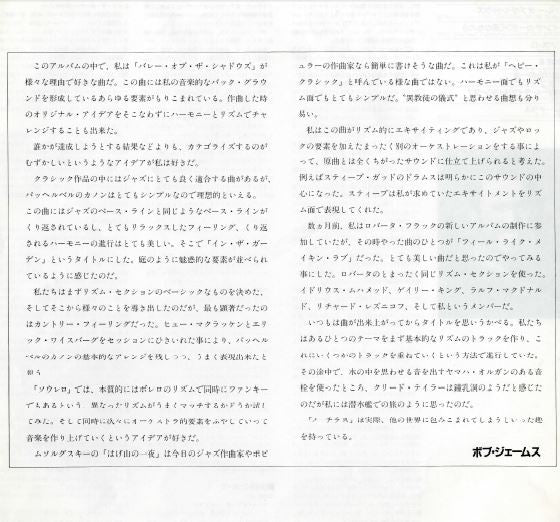 このアルバムの中で、私は「バレー・オブ・ザ・シャドウズ」が
様々な理由で好きな曲だ。この曲には私の音楽的なバック・グラウ
ンドを形成しているあらゆる要素がもりこまれている。作曲した時
のオリジナル・アイデアをそこなわずにハーモニーとリズムでチャ
レンジすることも出来た。
誰かが達成しようとする結果などよりも、カテゴライズするのが
むずかしいというようなアイデアが私は好きだ。
クラシック作品の中にはジャズにとても良く適合する曲があるが、
パッヘルベルのカノンはとてもシンプルなので理想的といえる。
この曲にはジャズのベース・ラインと同じようなベース・ラインが
くり返されているし、とてもリラックスしたフィーリング、くり返
されるハーモニーの進行はとても美しい。そこで「イン・ザ・ガー
デン」というタイトルにした。庭のように魅惑的な要素が並べられ
ているように感じたのだ。
私たちはまずリズム・セクションのベーシックなものを決めた、
そしてそこから様々のことを導き出したのだが、最も顕著だったの
はカントリー・フィーリングだった。ヒュー・マクラッケンとエリ
ック・ワイスバーグをセッションにひきいれた事により、パッヘル
ベルのカノンの基本的なアレンジを残しつつ、うまく表現出来たと
思う
「ソウレロ」では、本質的にはボレロのリズムで同時にファンキー
でもあるという、異なったリズムがうまくマッチするかどうか試し
てみた。そして同時に次々にオーケストラ的要素をふやしていって
音楽を作り上げていくというアイデアが好きだ。
ムソルグスキーの「はげ山の一夜」は今日のジャズ作曲家やポピ
ュラーの作曲家なら簡単に書けそうな曲だ。これは私が「ヘビー・
クラシック」と呼んでいる様な曲ではない。ハーモニー面でもリズ
ム面でもとてもシンプルだ。"異教徒の儀式"と思わせる曲想も分り
易い。
私はこの曲がリズム的にエキサイティングであり、ジャズやロッ
クの要素を加えたまったく別のオーケストレーションをする事によ
って、原曲とは全くちがったサウンドに仕立て上げられると考えた。
例えばスティーブ・ガッドのドラムスは明らかにこのサウンドの中
心になった。スティーブは私が求めていたエキサイトメントをリズ
ム面で表現してくれた。
数ヵ月前、私はロバータ・フラックの新しいアルバムの制作に参
加していたが、その時やった曲のひとつが「フィール・ライク・メ
イキン・ラブ」だった。とても美しい曲だと思ったのでやってみる
事にした。ロバータのとまったく同じリズム・セクションを使った。
イドリウス・ムハメッド、ゲイリー・キング、ラルフ・マクドナル
ド、リチャード・レズニコフ、そして私というメンバーだ。
いつもは曲が出来上がってからタイトルを思いうかべる。私たち
はあるひとつのテーマをまず基本的なリズムのトラックを作り、こ
れにいくつかのトラックを重ねていくという方法で進行していた。
その途中で、水の中を思わせる音を出すヤマハ・オルガンのある音
栓を使ったところ、クリード・テイラーは鍾乳洞のようだと感じた
のだが私には潜水艦での旅のように思ったのだ。
チラス」は実際、他の世界に包みこまれてしまうといった趣
を持っている。
ボブ・ジェームス